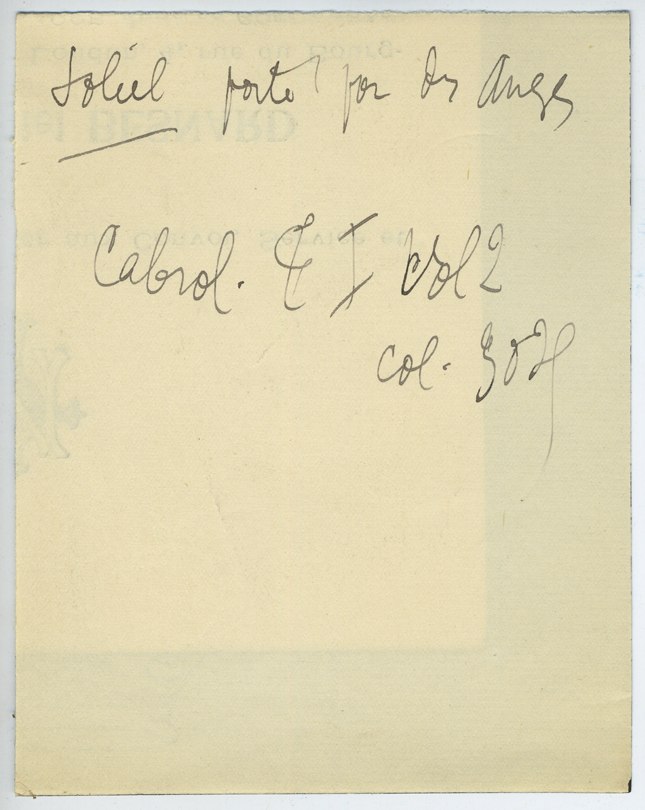 Soleil porté par des Anges
Cabrol. T I vol 2
col.